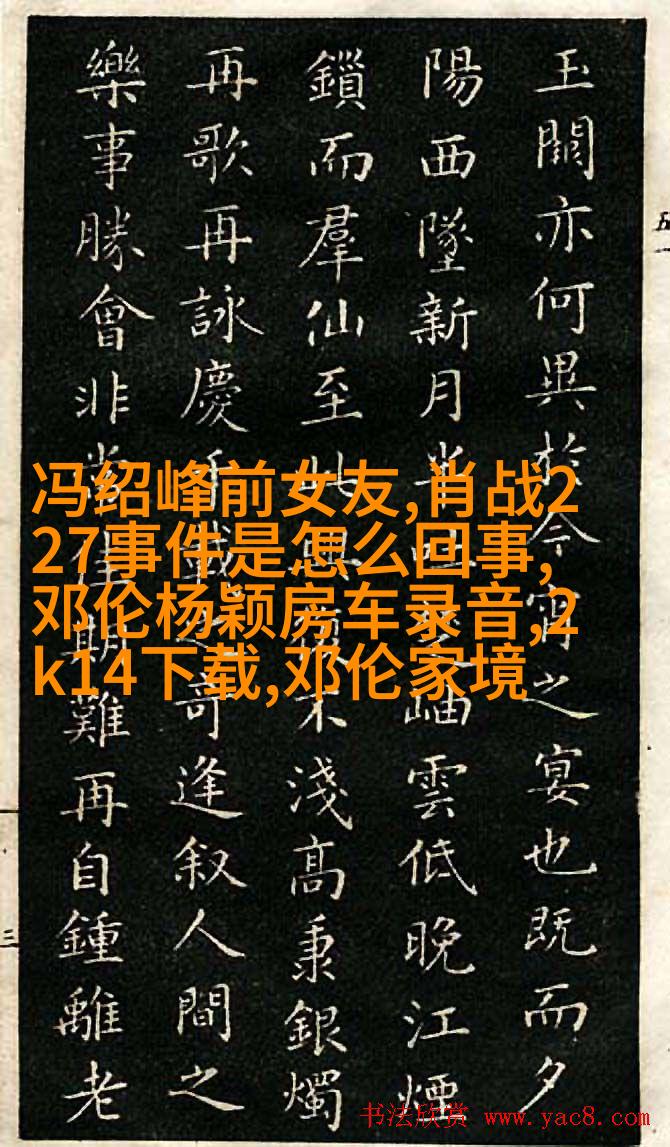 玉闕亦何異於今宵之宴也既而夕
陽西墜新月半吐岫雲低晚江煙
鎖而羣仙至此興復不淺高秉銀燭
再歌再詠慶千載之奇逢叙人間之
樂事勝會非常佳期難再自鍾離老
冯绍峰前女友,肖战2
27事件是怎么回事,
邓伦杨颖房车录音,2
k14下载,邓伦家境
五
三
书法欣赏 www.yac8.com